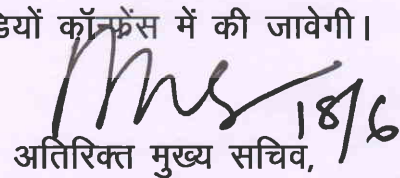 डियों कॉन्फ्रेंस में की जावेगी।
18/6
अतिरिक्त मुख्य सचिव,